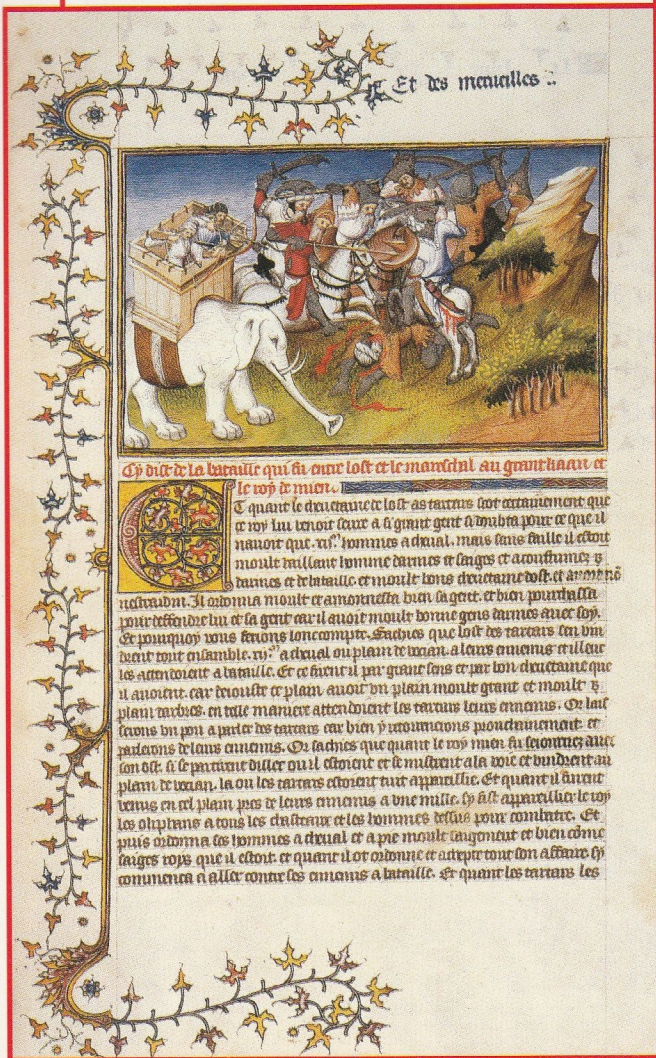 Et des merueilles
Cy dist de la bataille qui fu entre lost et le mareschal au grant kaan et
le roy de mien.
Et quant le cheuetaine de lost as tartars scot certainement que
ce roy lui venoit seure a si grant gent si doubta pour ce que il
nauoit que .xij.m hommes a cheual. mais sans faille il estoit
moult vaillant homme darmes et saiges et acoustumez
darmes et de bataille. et moult bons cheuetaine dost. et auoit nō
nescradin. Il ordonna moult et amonnesta bien sa gent. et bien pourchassa
pour deffendre lui et sa gent car il auoit moult bonne gens darmes auec soy.
Et pourquoy vous feroins lonc compte. Sachies que lost des tartars sen vin
drent tout ensemble .xij.m a cheual ou plain de vocian. a leurs ennemis et illeuc
les attendoient a bataille. Et ce firent il par grant sens et par bon cheuetaine que
il auoient. car de iouste ce plain auoit vn plain moult grant et moult
plain darbres. en telle maniere attendoient les tartars leurs ennemis. Or lais
serons vn pou a parler des tartars car bien y retournerons prouchainement. et
parlerons de leurs ennemis. Or sachies que quant le roy mien fu seiournez auec
son ost. si se partirent dillec ou il estoient et se mistrent a la voie et vindrent au
plain de vocian. la ou les tartars estoient tuit appareillie. Et quant il furent
venus en cel plain pres de leurs ennemis a vne mille. sy fist appareillier le roy
les oliphans a tous les chasteaux et les hommes dessus pour combatre. Et
puis ordonna ses hommes a cheual et a pie moult saigement et bien cōme
saiges roys que il estoit. et quant il ot ordonne et tout son affaire sy
commenca a aller contre ses ennemis a bataille. Et quant les tartars les